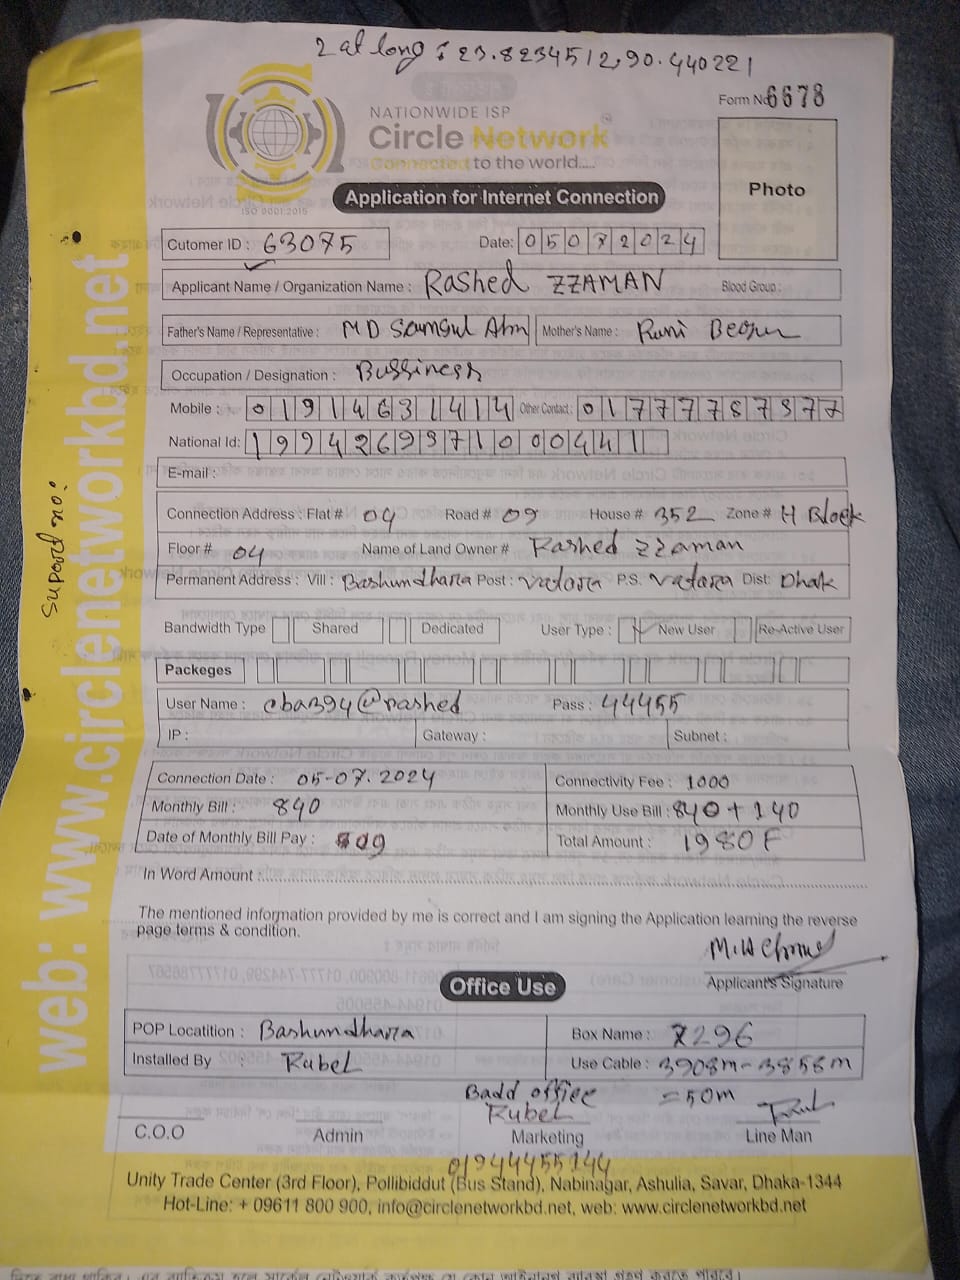 2 at long : 23.8234512,90.440221
Form No 6678
NATIONWIDE ISP
Circle Network
Connected to the world.....
ISO 9001:2015
Application for Internet Connection
Photo
Cutomer ID : 63075 Date: 05072024
Applicant Name / Organization Name : Rashed ZZAMAN Blood Group :
Father's Name / Representative : MD Samsul Alm Mother's Name : Runi Begum
Occupation / Designation : Bussiness
Mobile : 01914631414 Other Contact : 01777787377
National Id: 19942699710000441
E-mail :
Connection Address : Flat # 04 Road # 09 House # 352 Zone # H Block
Floor # 04 Name of Land Owner # Rashed zzaman
Permanent Address : Vill : Bashundhara Post : Vatara P.S. Vatara Dist: Dhak
Bandwidth Type Shared Dedicated User Type : New User Re-Active User
Packeges
User Name : cba394@rashed Pass : 44455
IP : Gateway : Subnet :
Connection Date : 05-07.2024 Connectivity Fee : 1000
Monthly Bill : 840 Monthly Use Bill : 840 + 140
Date of Monthly Bill Pay : 09 Total Amount : 1980
In Word Amount :
The mentioned information provided by me is correct and I am signing the Application learning the reverse
page terms & condition.
Applicant's Signature
Office Use
POP Locatition : Bashundhara Box Name : 7296
Installed By : Rubel Use Cable : 3908m-3858m
Badd office =50m
Rubel
C.O.O Admin Marketing Line Man
01944455144
Unity Trade Center (3rd Floor), Pollibiddut (Bus Stand), Nabinagar, Ashulia, Savar, Dhaka-1344
Hot-Line: + 09611 800 900, info@circlenetworkbd.net, web: www.circlenetworkbd.net
web: www.circlenetworkbd.net
Supoord no: